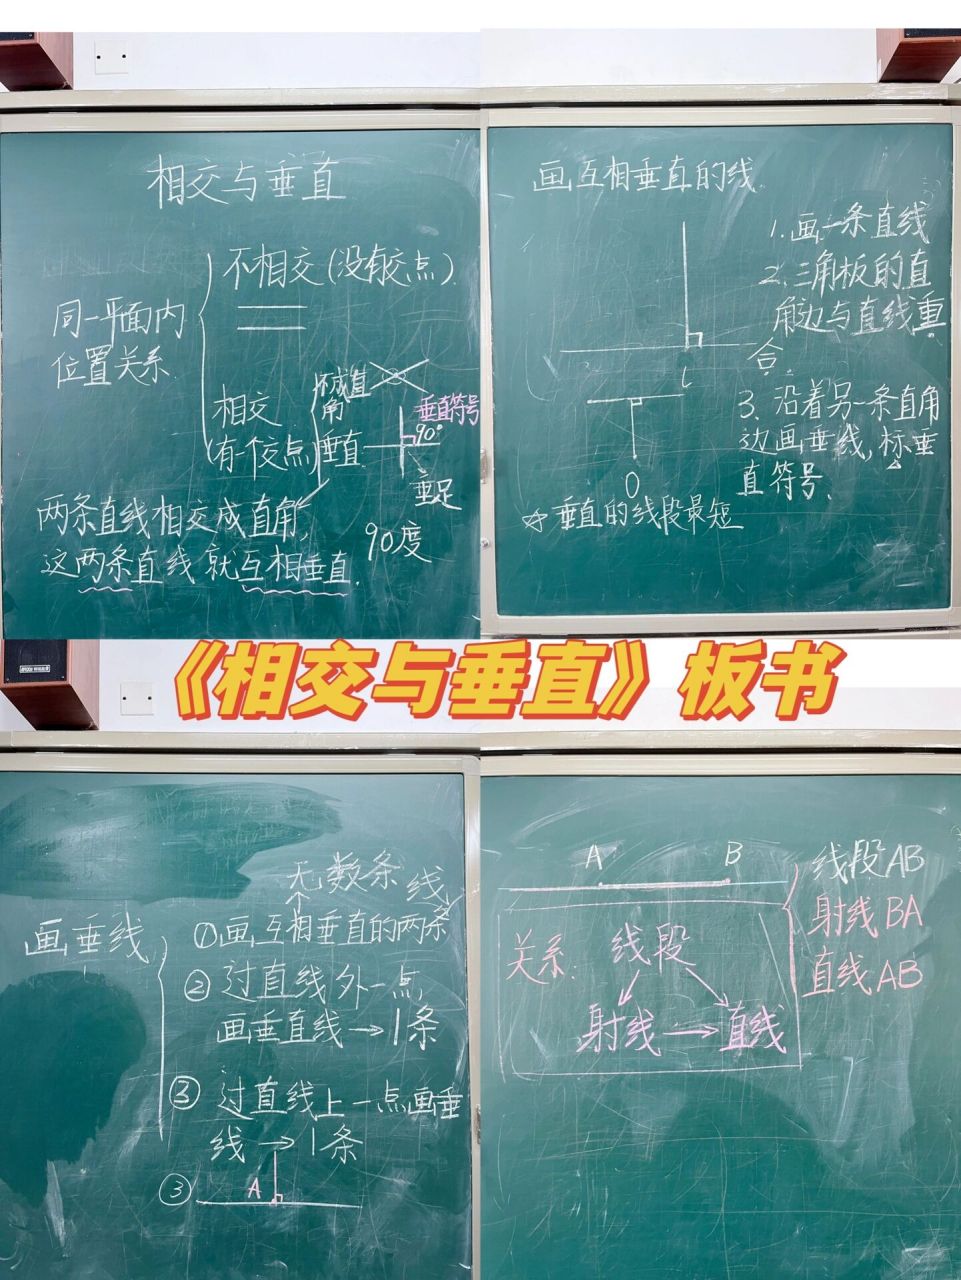 相交与垂直
同一平面内
位置关系
不相交(没有交点)
相交
(有一个交点)
不成直
角
垂直
垂直符号
90°
垂足
两条直线相交成直角,
这两条直线就互相垂直.
90度
画互相垂直的线
1.画一条直线
2.三角板的直
角边与直线重
合.
3.沿着另一条直角
边画垂线,标垂
直符号.
O
☆垂直的线段最短
《相交与垂直》板书
画垂线
无数条
①画互相垂直的两条
线
②过直线外一点,
画垂直线→1条
③过直线上一点画垂
线→1条
③
A
A B
线段AB
射线BA
直线AB
关系:
线段
射线→直线